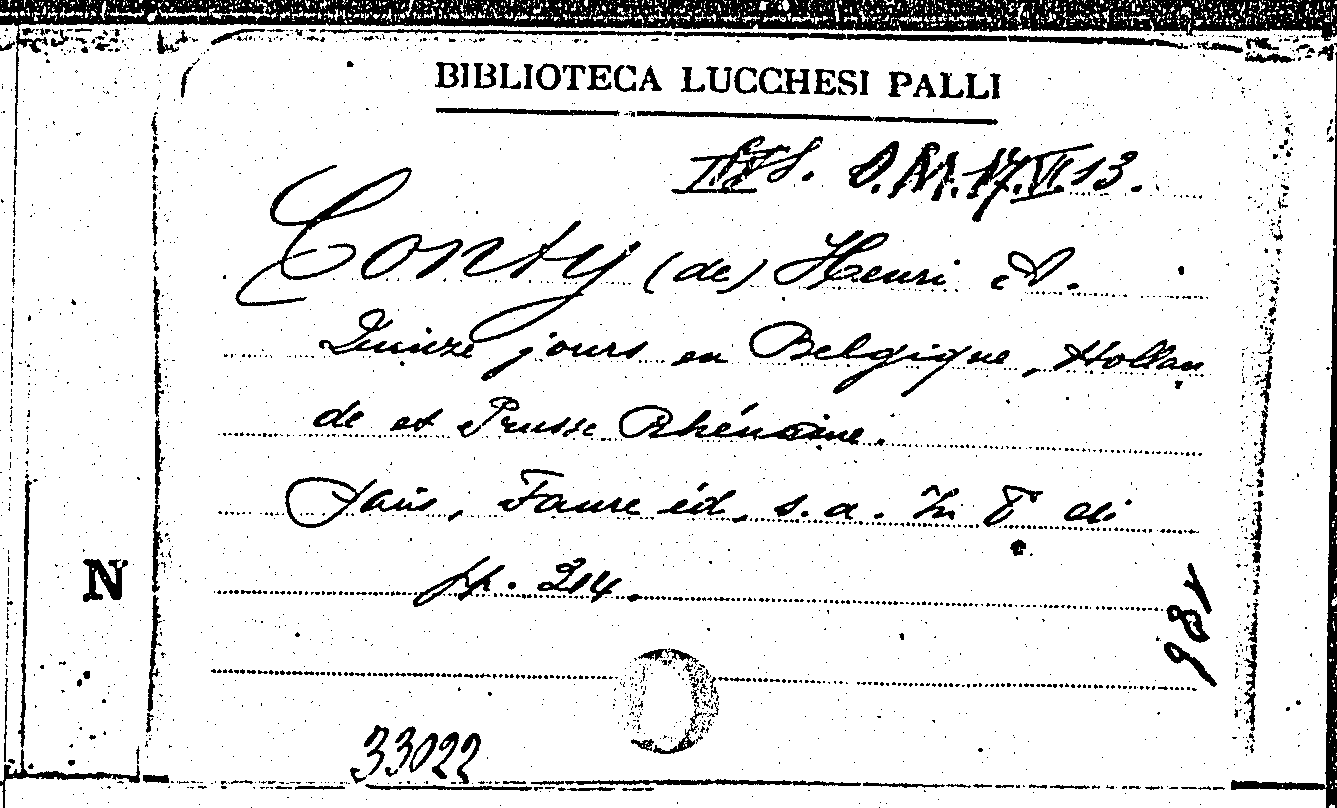 BIBLIOTECA LUCCHESI PALLI
17.VI.13.
Conty (de) Henri A.
Quinze jours en Belgique, Hollan
de et Prusse Rhénane.
Paris, Faure éd. s.a. In 8° di
pp. 214.
N
33022